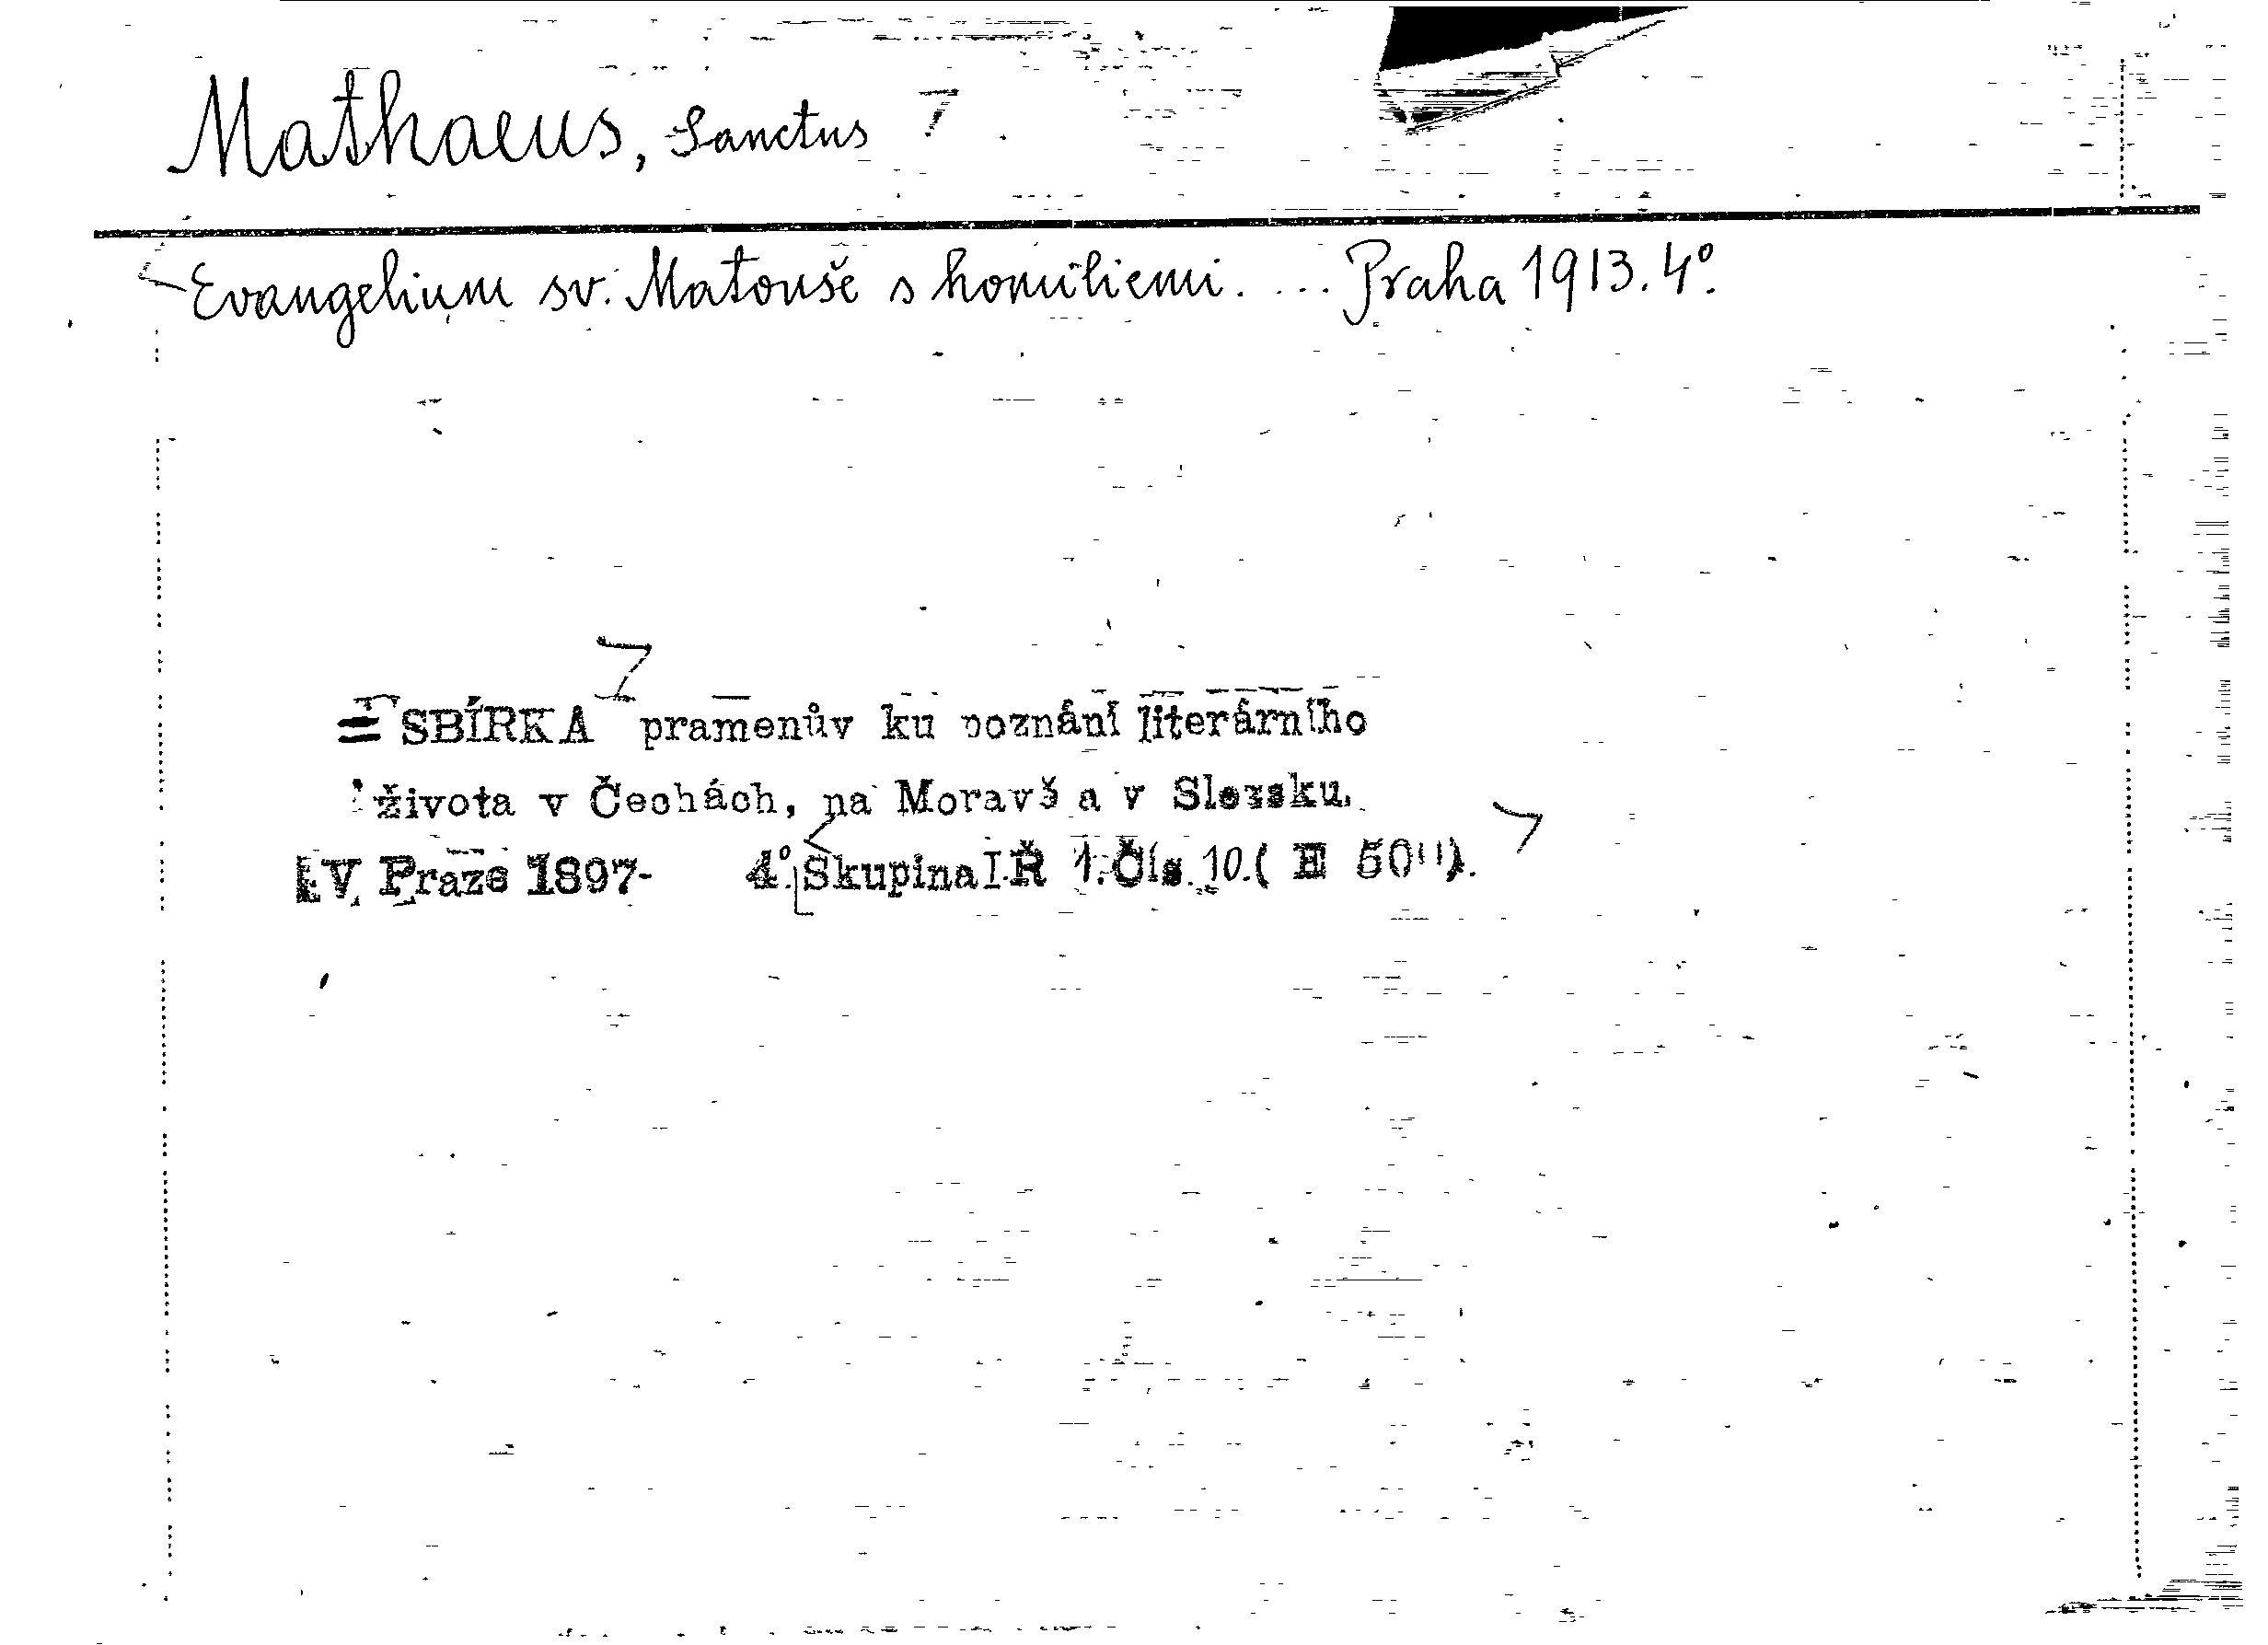 Mathaeus, Sanctus
Evangelium sv. Matouše s homiliemi. ... Praha 1913. 4°.
= SBÍRKA pramenův ku poznání literárního
života v Čechách, na Moravě a v Slezsku.
V Praze 1897- 4°. Skupina I. Ř 1. Čís. 10. ( H 50